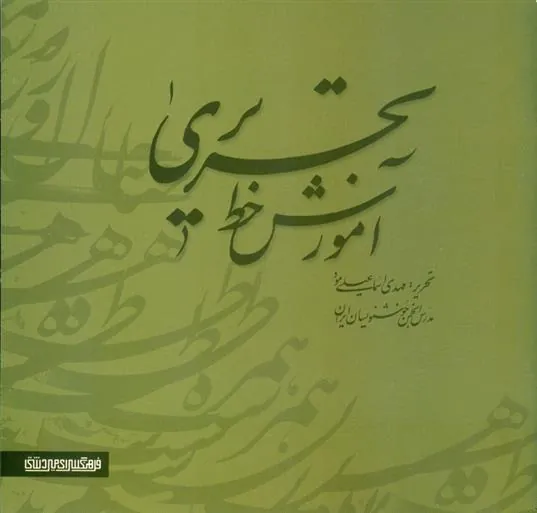 آموزش خط
تحریری ۱
تحریر: مهدی اسماعیلی مود
مدرس انجمن خوشنویسان ایران
فرهنگسرای میردشتی